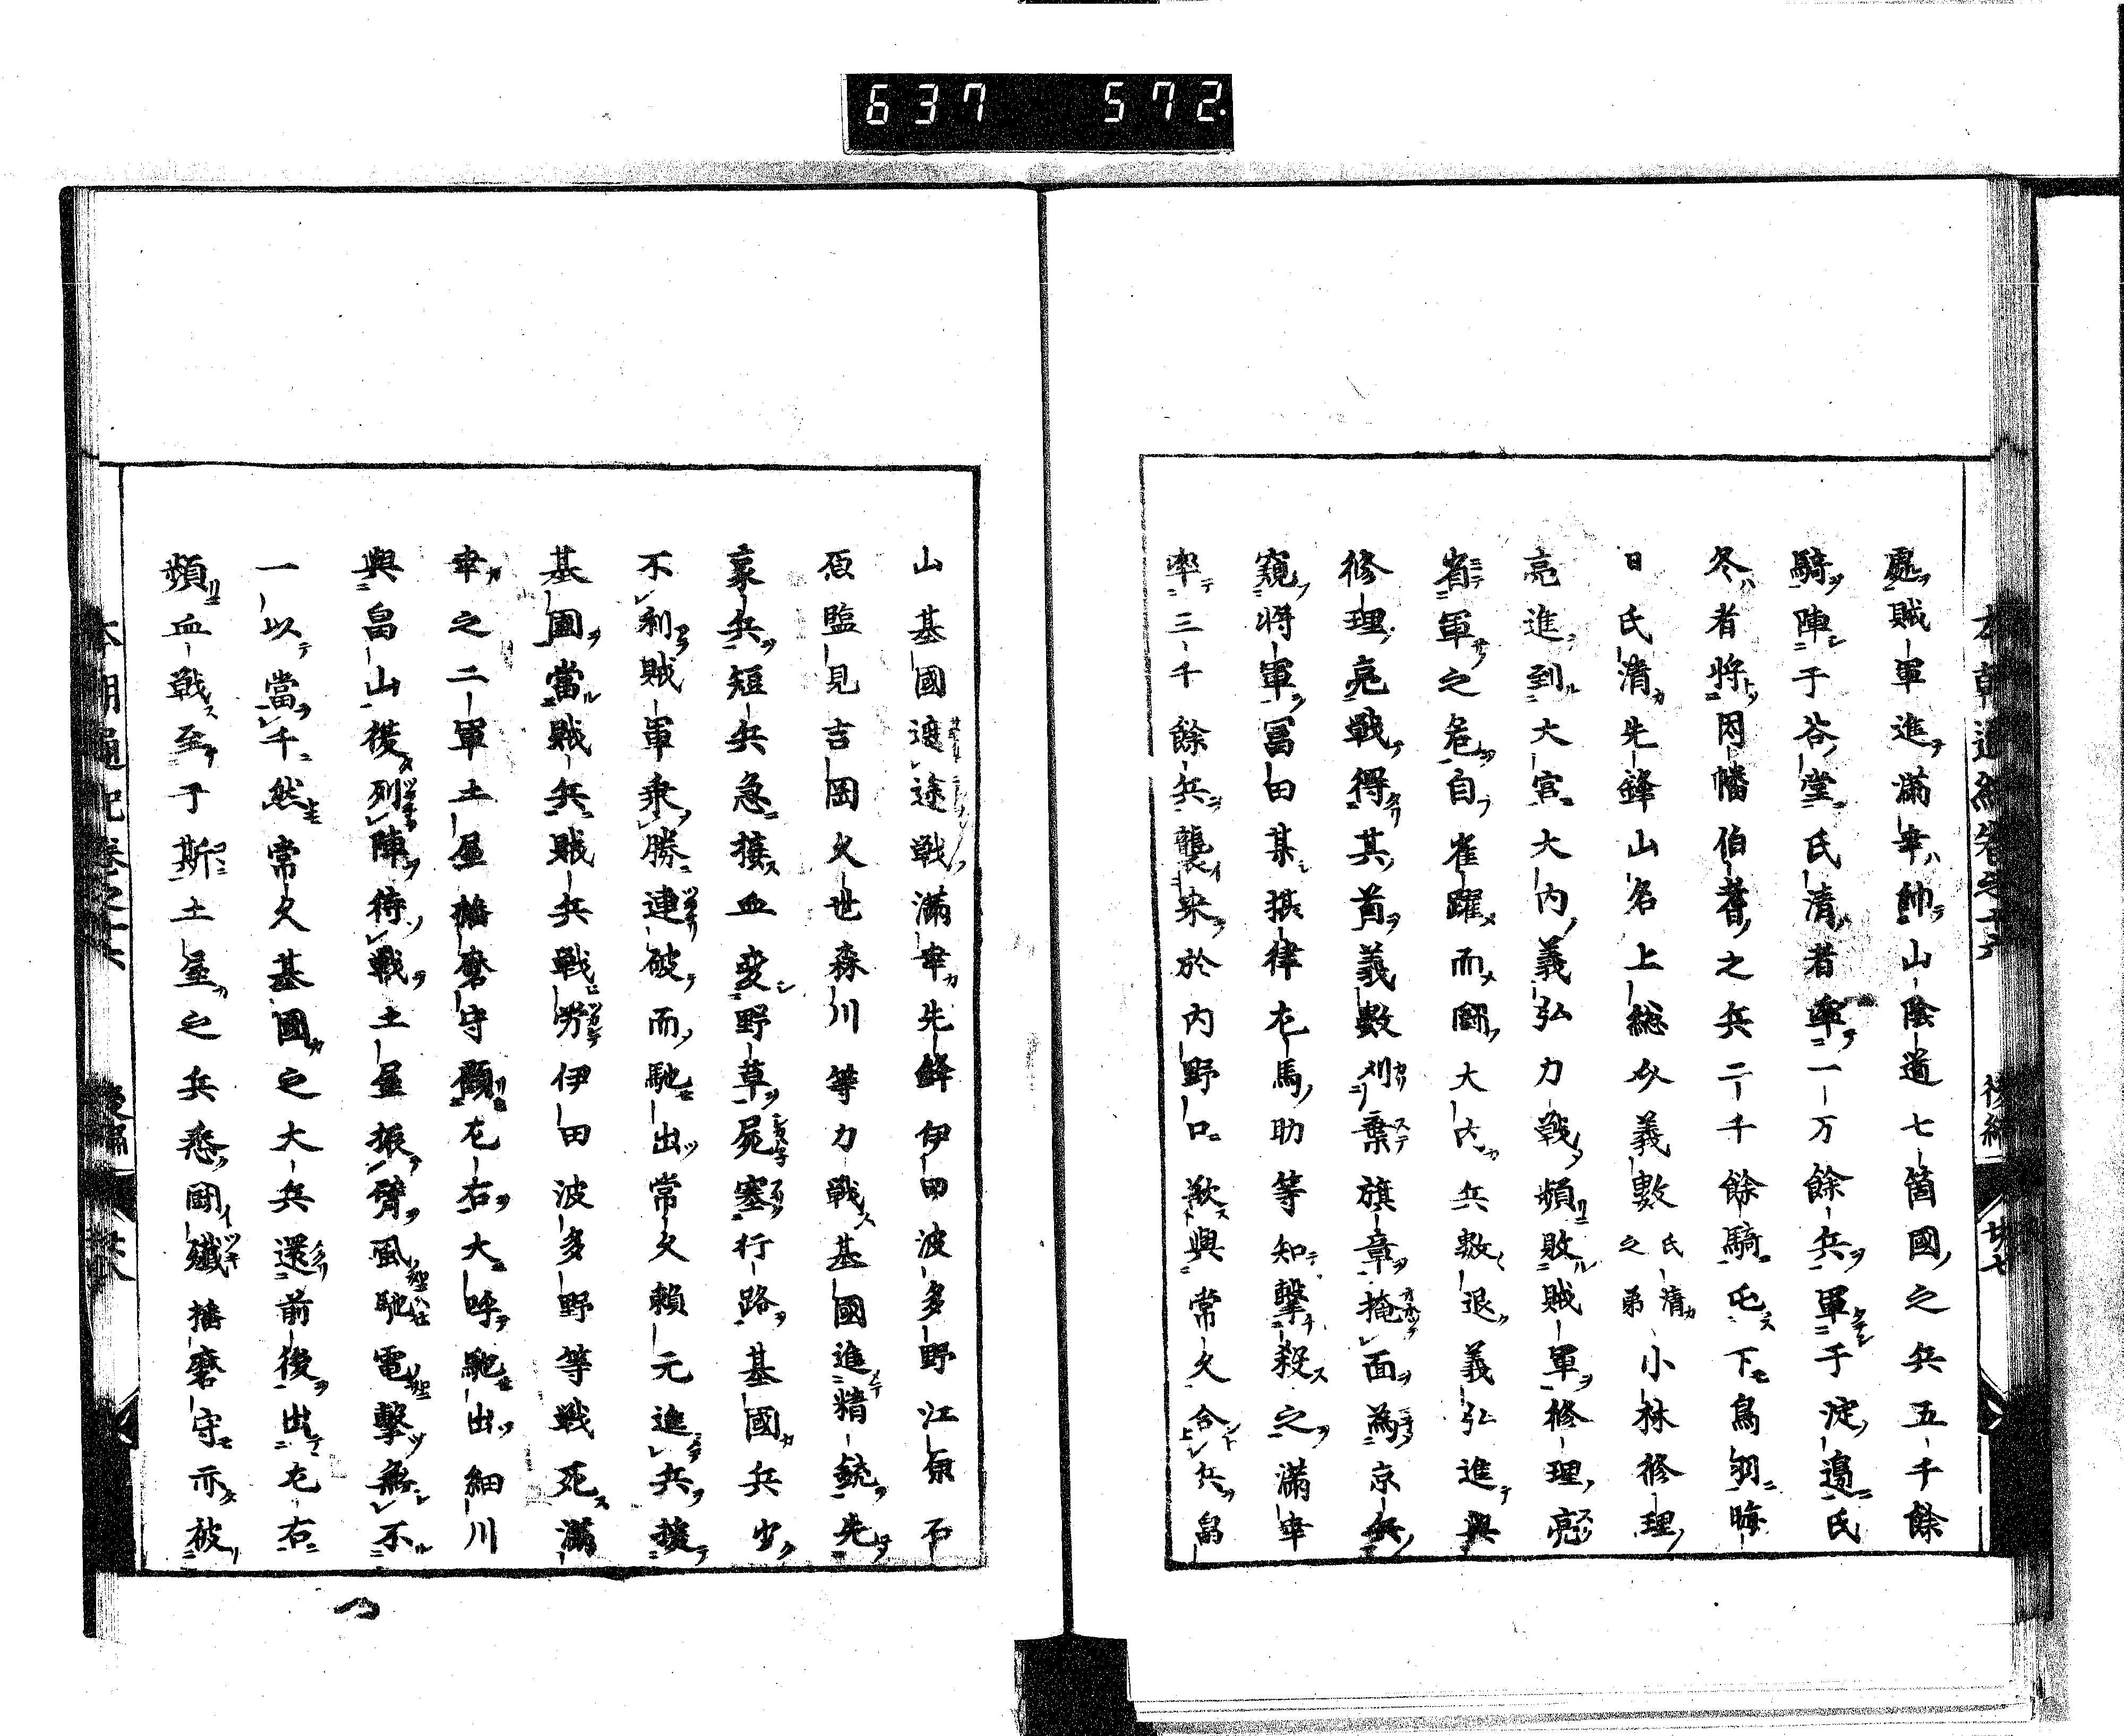 637 572.
本朝通紀卷之十六 後編 廿七
處賊軍進滿幸帥山陰道七箇國之兵五千餘
騎陣于谷堂氏清者率一万餘兵軍于淀邊氏
冬者將因幡伯耆之兵二千餘騎屯下鳥羽晦
日氏清先鋒山名上総介義數氏清之弟小林修理
亮進到大宮大内義弘力戰頻敗賊軍修理亮
省軍之危自雀躍而鬪大内兵數退義弘進與
修理亮戰得其首義數刈棄旗章掩面為京兵
窺將軍冨田某摂律左馬助等知擊殺之滿幸
率三千餘兵襲来於内野口欲與常久合兵畠
山基國遮途戰滿幸先鋒伊田波多野江原石
原監見吉岡久世森川等力戰基國進精銳先
豪兵短兵急接血変野草屍塞行路基國兵少
不利賊軍乘勝連破而馳出常久賴元進兵援
基國當賊兵賊兵戰労伊田波多野等戦死滿
幸之二軍土屋播磨守顧左右大呼馳出細川
與畠山後列陣待戰土屋振臂風馳電擊無不
一以當千然常久基國之大兵還前後出左右
頻血戰至于斯土屋之兵悉鬪殲播磨守亦被
本朝通紀卷之十六 後編